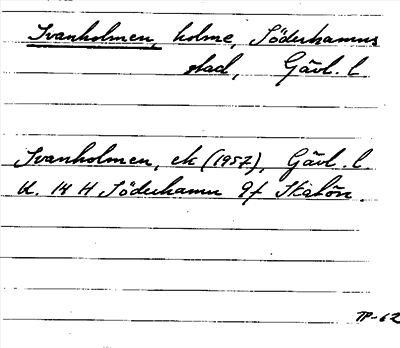 Svanholmen, holme, Söderhamns
stad, Gävl. l
Svanholmen, ek (1957), Gävl. l
U. 14 H Söderhamn 9f Skatön.
TP-62